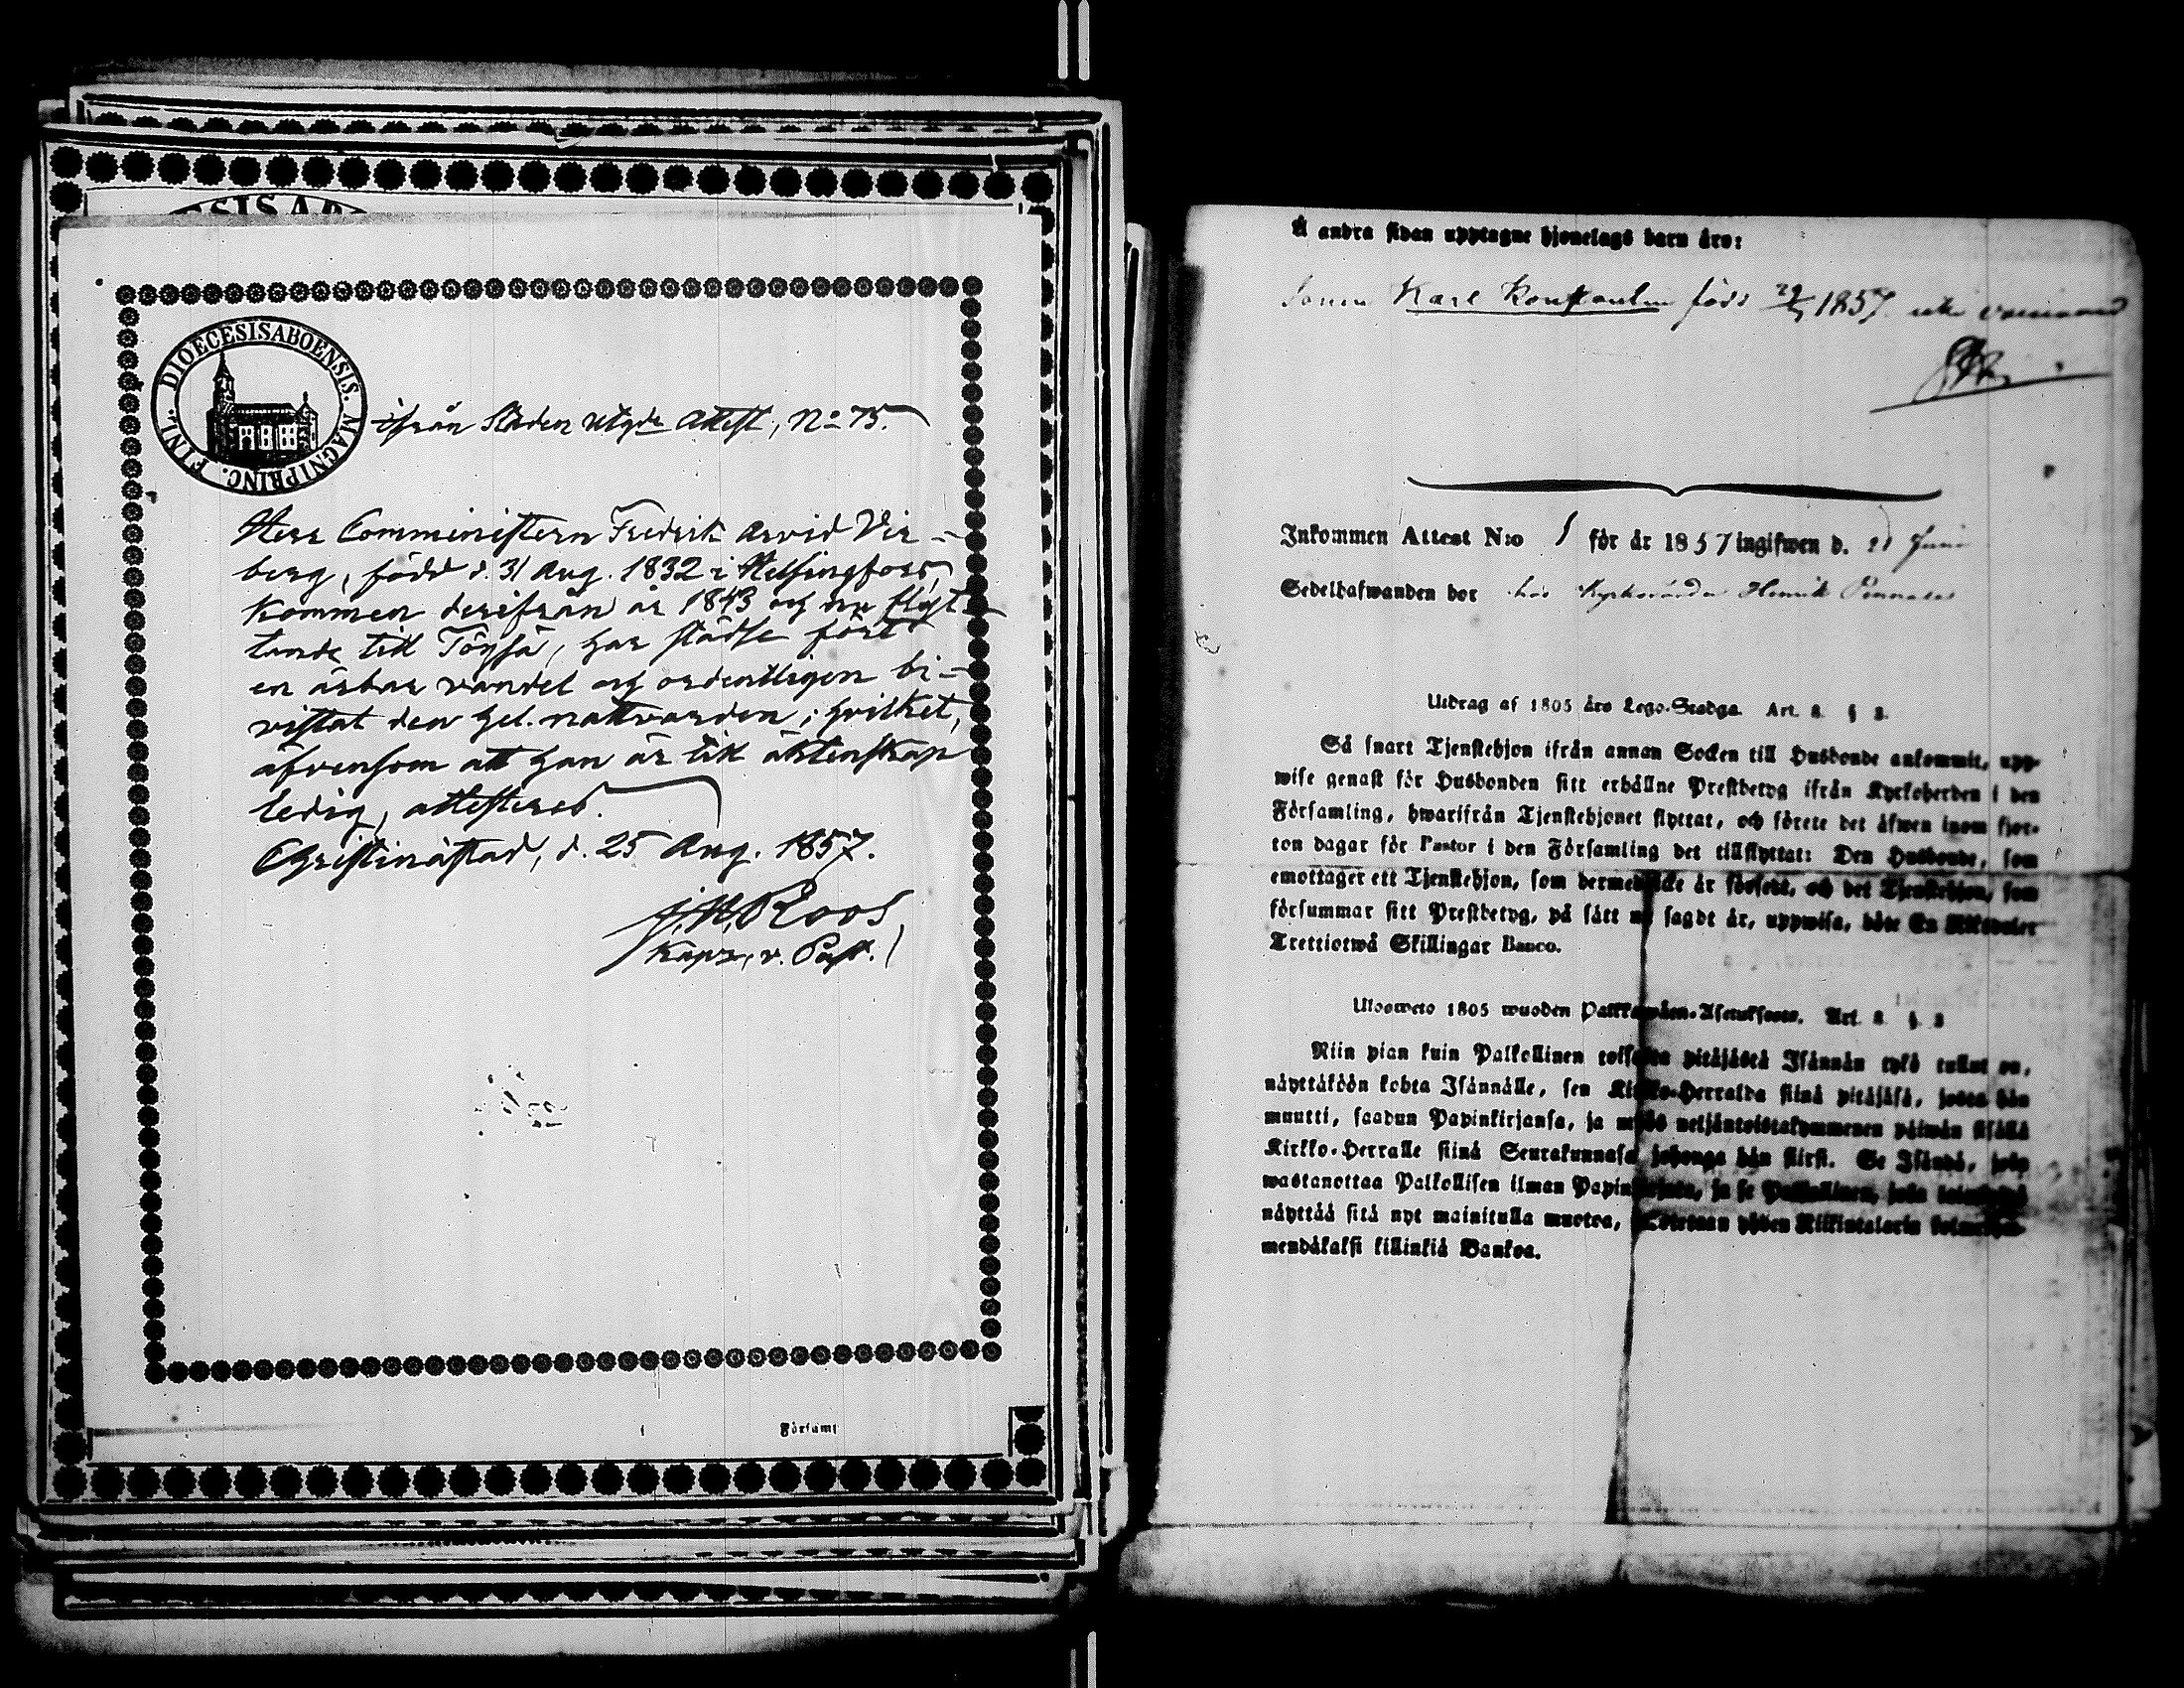 ESIS AB
DIOECESIS ABOENSIS. MAGNI PRINC. FINL.
ifrån Staden utgde Attest, No 75.
Herr Comministern Fredrik Arvid Vir-
berg, född d. 31 Aug. 1832 i Helsingfors,
kommen derifrån år 1843 och nu flyt-
tande till Töysä, har städse fört
en ärbar vandel och ordentligen bi-
vistat den hel. nattvarden; hvilket,
äfvensom att han är till äktenskap
ledig, attesteras.
Christinästad, d. 25 Aug. 1857.
J. H. Roos
Kapx, v. Past.
Församl
Å andra sidan upptagne hjonelags barn äro:
Sonen Karl Konstantin född 1857
Inkommen Attest N:o 1 för år 1857 ingifwen d. 21 Juni
Sedelhafwanden bor hos Henrik
Utdrag af 1805 års Lego-Stadga. Art. 2. § 2.
Så snart Tjenstehjon ifrån annan Socken till Husbonde ankommit, upp-
wise genast för Husbonden sitt erhållne Prestbetyg ifrån Kyrkoherden i den
Församling, hwarifrån Tjenstehjonet flyttat, och förete det äfwen inom fjor-
ton dagar för Pastor i den Församling det tillflyttat: Den Husbonde, som
emottager ett Tjenstehjon, som dermed icke är försedt, och det Tjenstehjon, som
försummar sitt Prestbetyg, på sätt nu sagdt är, uppwisa, böte En Riksdaler
Trettiotwå Skillingar Banco.
Ulosweto 1805 wuoden Palkkawäen-Asetuksesta. Art. 2. §. 2
Niin pian kuin Palkollinen toisesta pitäjästä Isännän tykö tullut on,
näyttäköön kohta Isännälle, sen Kirkko-Herralda siinä pitäjäsä, josta hän
muutti, saadun Papinkirjansa, ja myös neljäntoistakymmenen päiwän sisällä
Kirkko-Herralle siinä Seurakunnasa johonga hän siirsi. Se Isändä, joka
wastanottaa Palkollisen ilman Papinkirjata, ja se Palkollinen, joka
näyttää sitä nyt mainitulla muotoa, yhden Riikintalarin
mendäkaksi killinkiä Bankoa.